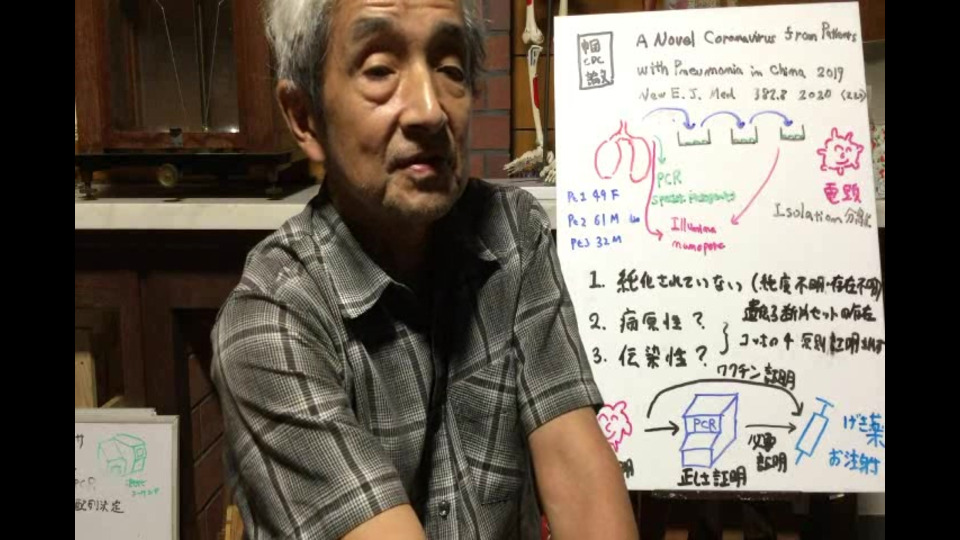 中国
CDC
論文
A Novel Coronavirus from Patients
with Pneumonia in China 2019
New E. J. Med 382.8 2020
PCR
Pt1 49 F
Pt2 61 M
Pt3 32 M
Illumina
nanopore
電顕
Isolation 分離
1. 純化されていない (純度不明・存在不明)
遺伝子断片セットの存在
2. 病原性?
3. 伝染性?
コッホの4原則 証明されず
ワクチン証明
PCR
正しさ証明
必要
証明
明
げき薬
お注射
配列決定